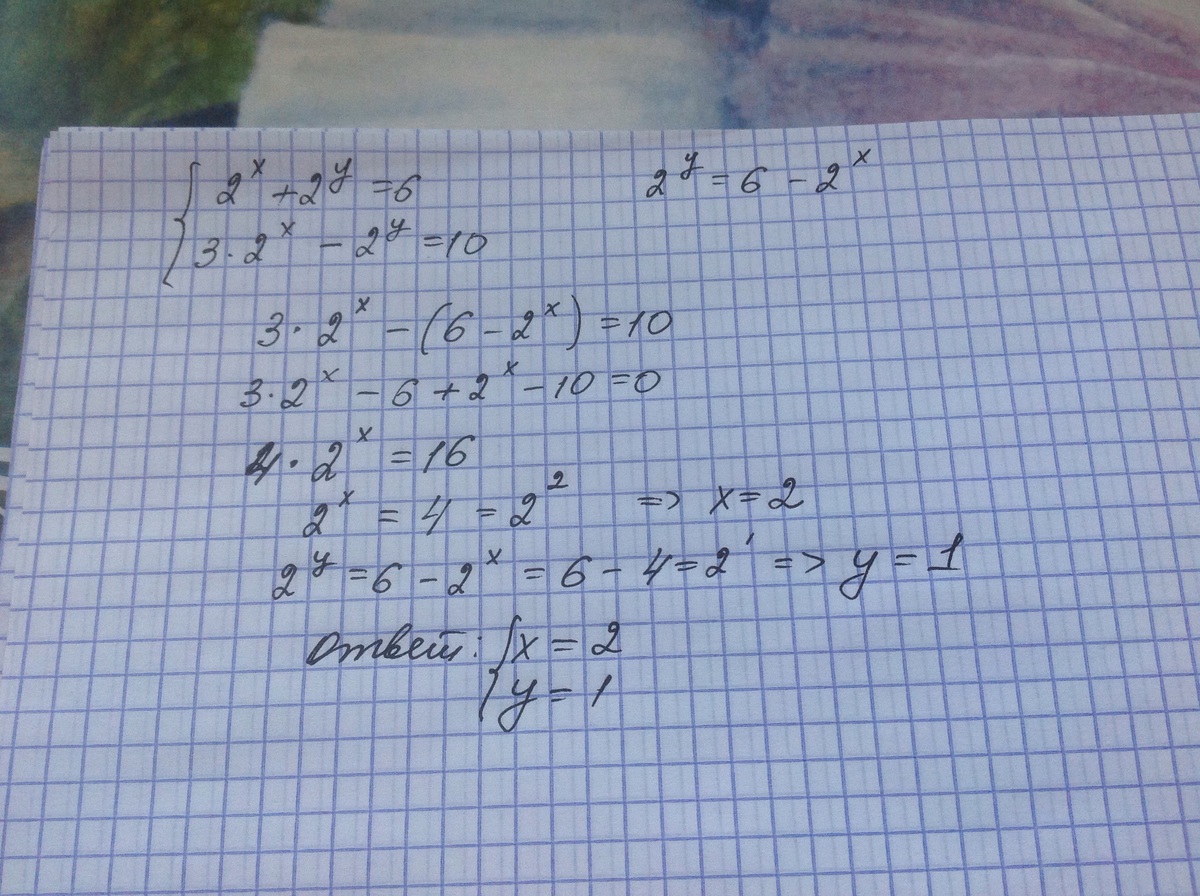 { 2^x + 2^y = 6    2^y = 6 - 2^x
3·2^x - 2^y = 10
3·2^x - (6 - 2^x) = 10
3·2^x - 6 + 2^x - 10 = 0
4·2^x = 16
2^x = 4 = 2^2 => x = 2
2^y = 6 - 2^x = 6 - 4 = 2^1 => y = 1
Ответ: { x = 2
y = 1